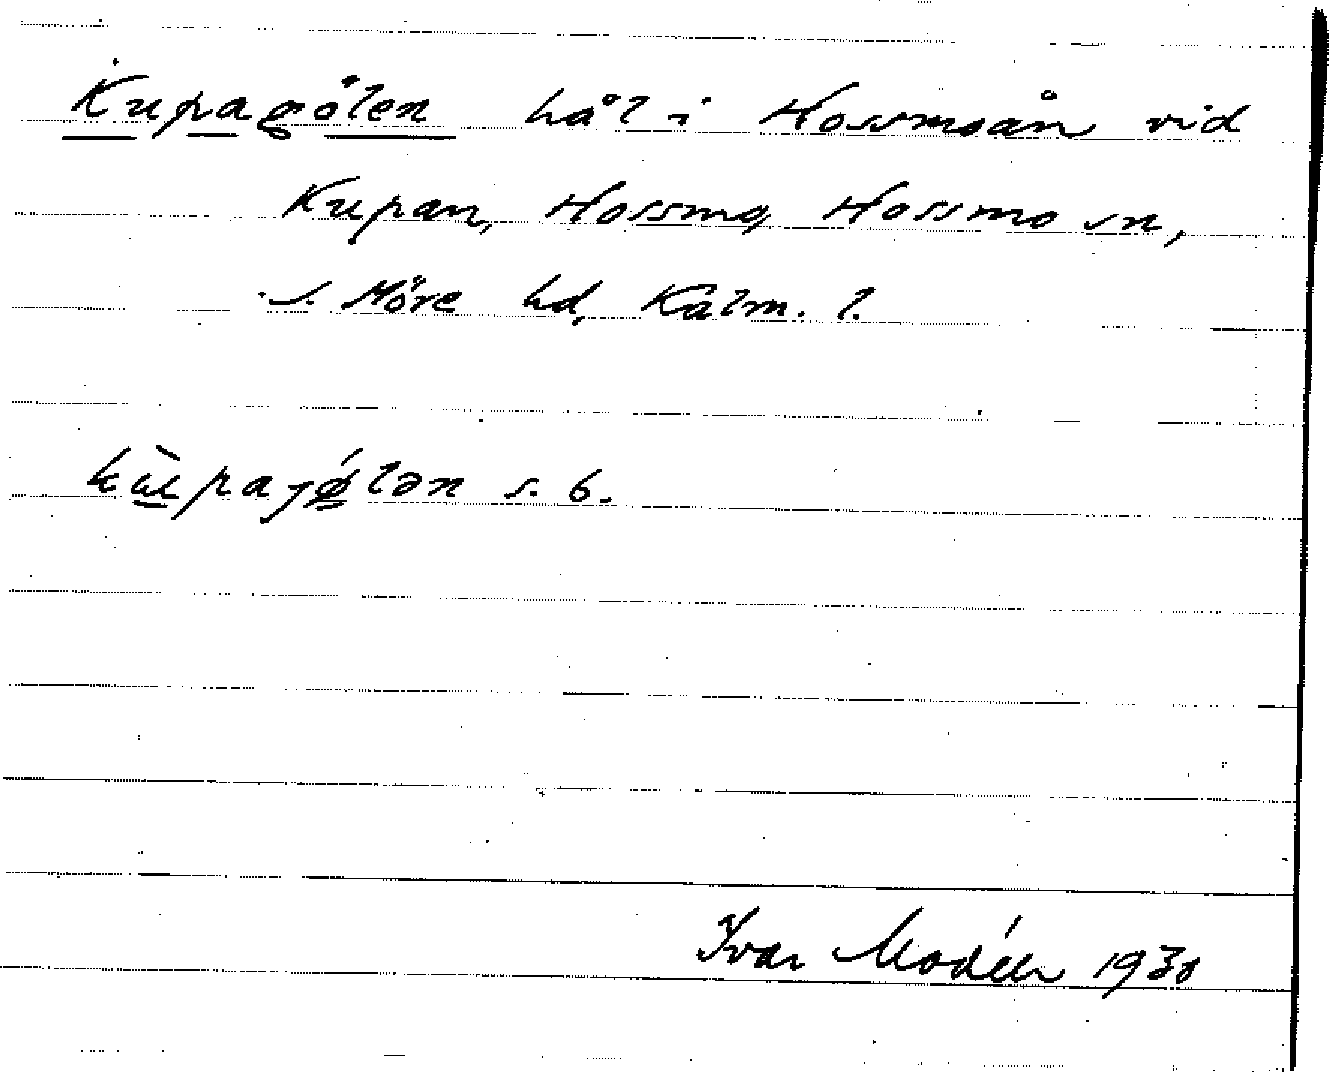 Kupagölen hål i Hossmoån vid
Kupan, Hossmo, Hossmo sn,
S. Möre hd, Kalm. l.
s. b.
Ivar Modéer 1930